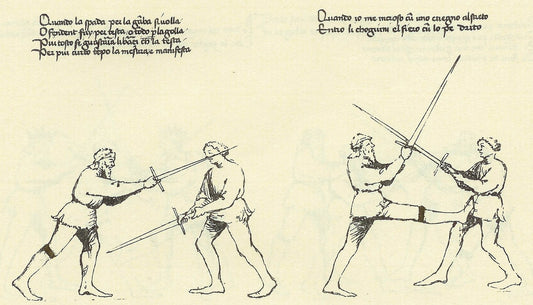 Quando la spada per la gāba si volla
O fendent fay per testa o todo p la golla
Piu tosto se guastaria li brazi che la testa
Per piu curto tēpo la mesura e manifesta
Quando io me incroso cū uno e vegno al streto
Entro li chogiuni el fiero cū lo pe drito